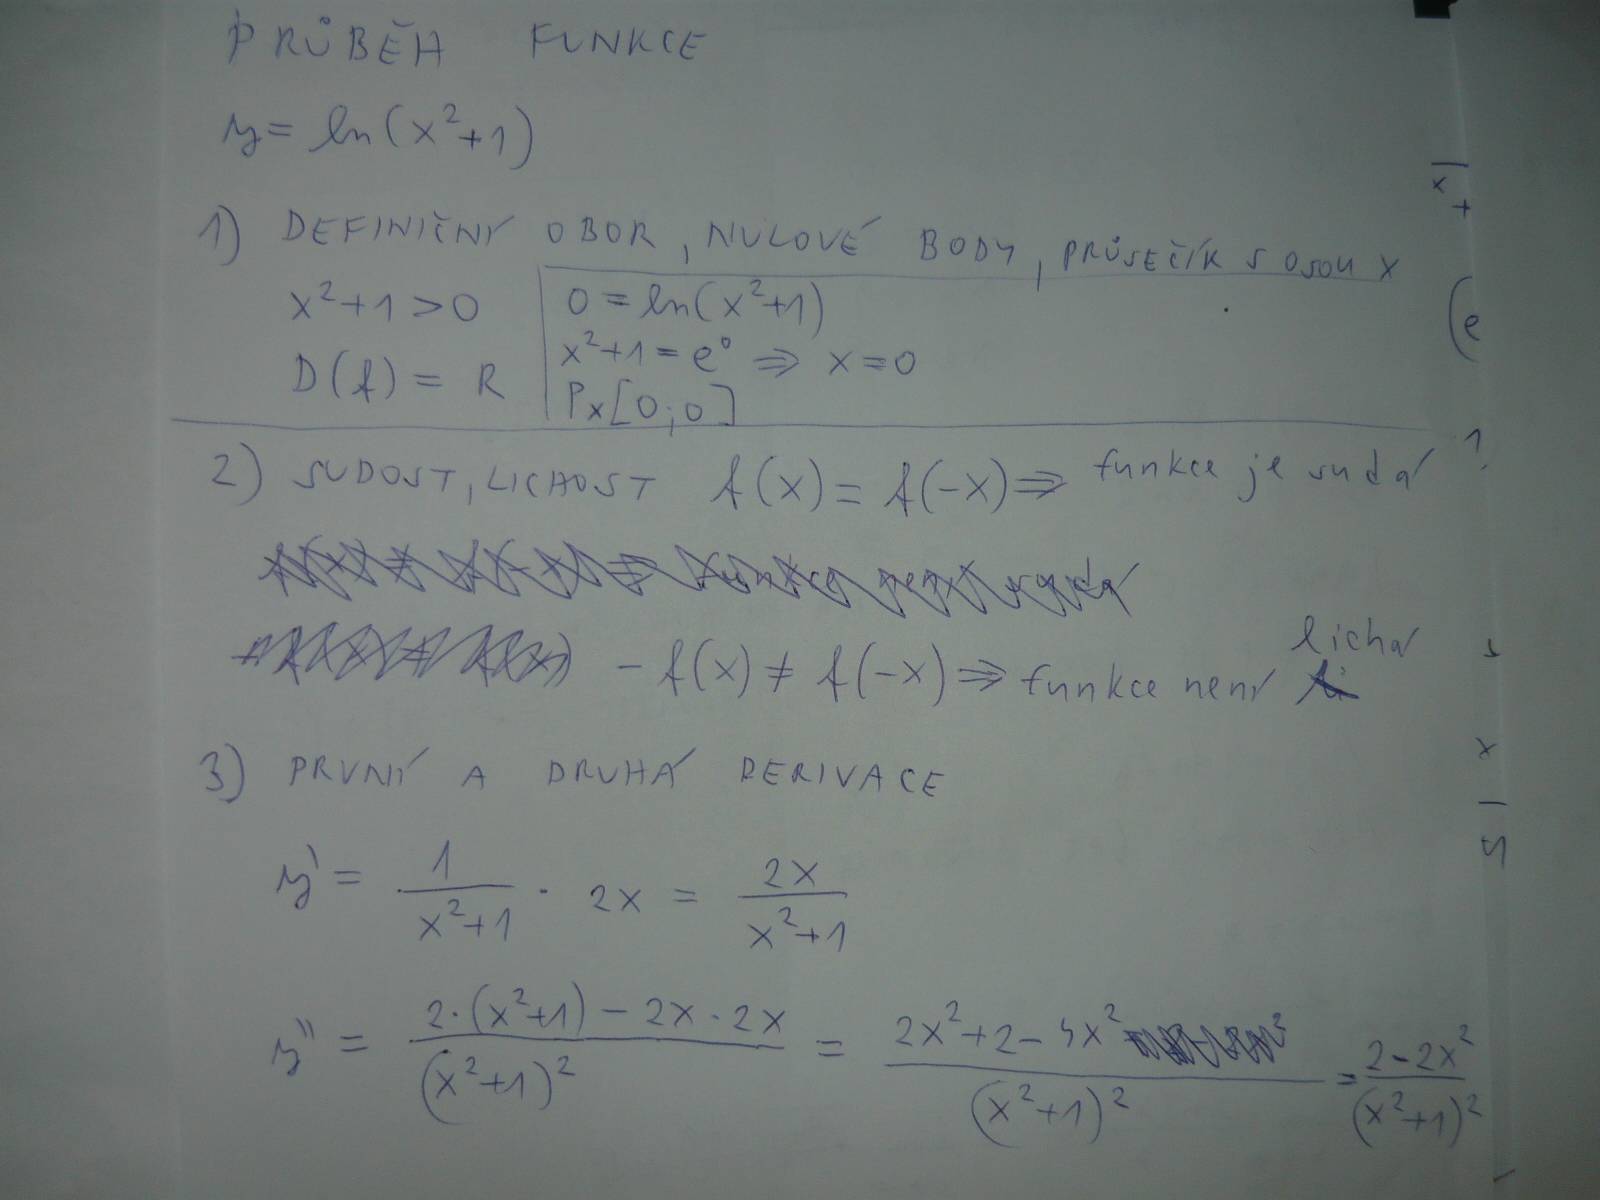 PRŮBĚH FUNKCE
y = ln(x²+1)
1) DEFINIČNÍ OBOR, NULOVÉ BODY, PRŮSEČÍK S OSOU X
x²+1>0
D(f) = R
0 = ln(x²+1)
x²+1 = e⁰ ⇒ x=0
Px[0;0]
2) SUDOST, LICHOST f(x) = f(-x) ⇒ funkce je sudá
-f(x) ≠ f(-x) ⇒ funkce není lichá
3) PRVNÍ A DRUHÁ DERIVACE
y' = 1/(x²+1) · 2x = 2x/(x²+1)
y'' = (2·(x²+1) - 2x·2x)/(x²+1)² = (2x²+2-4x²)/(x²+1)² = (2-2x²)/(x²+1)²